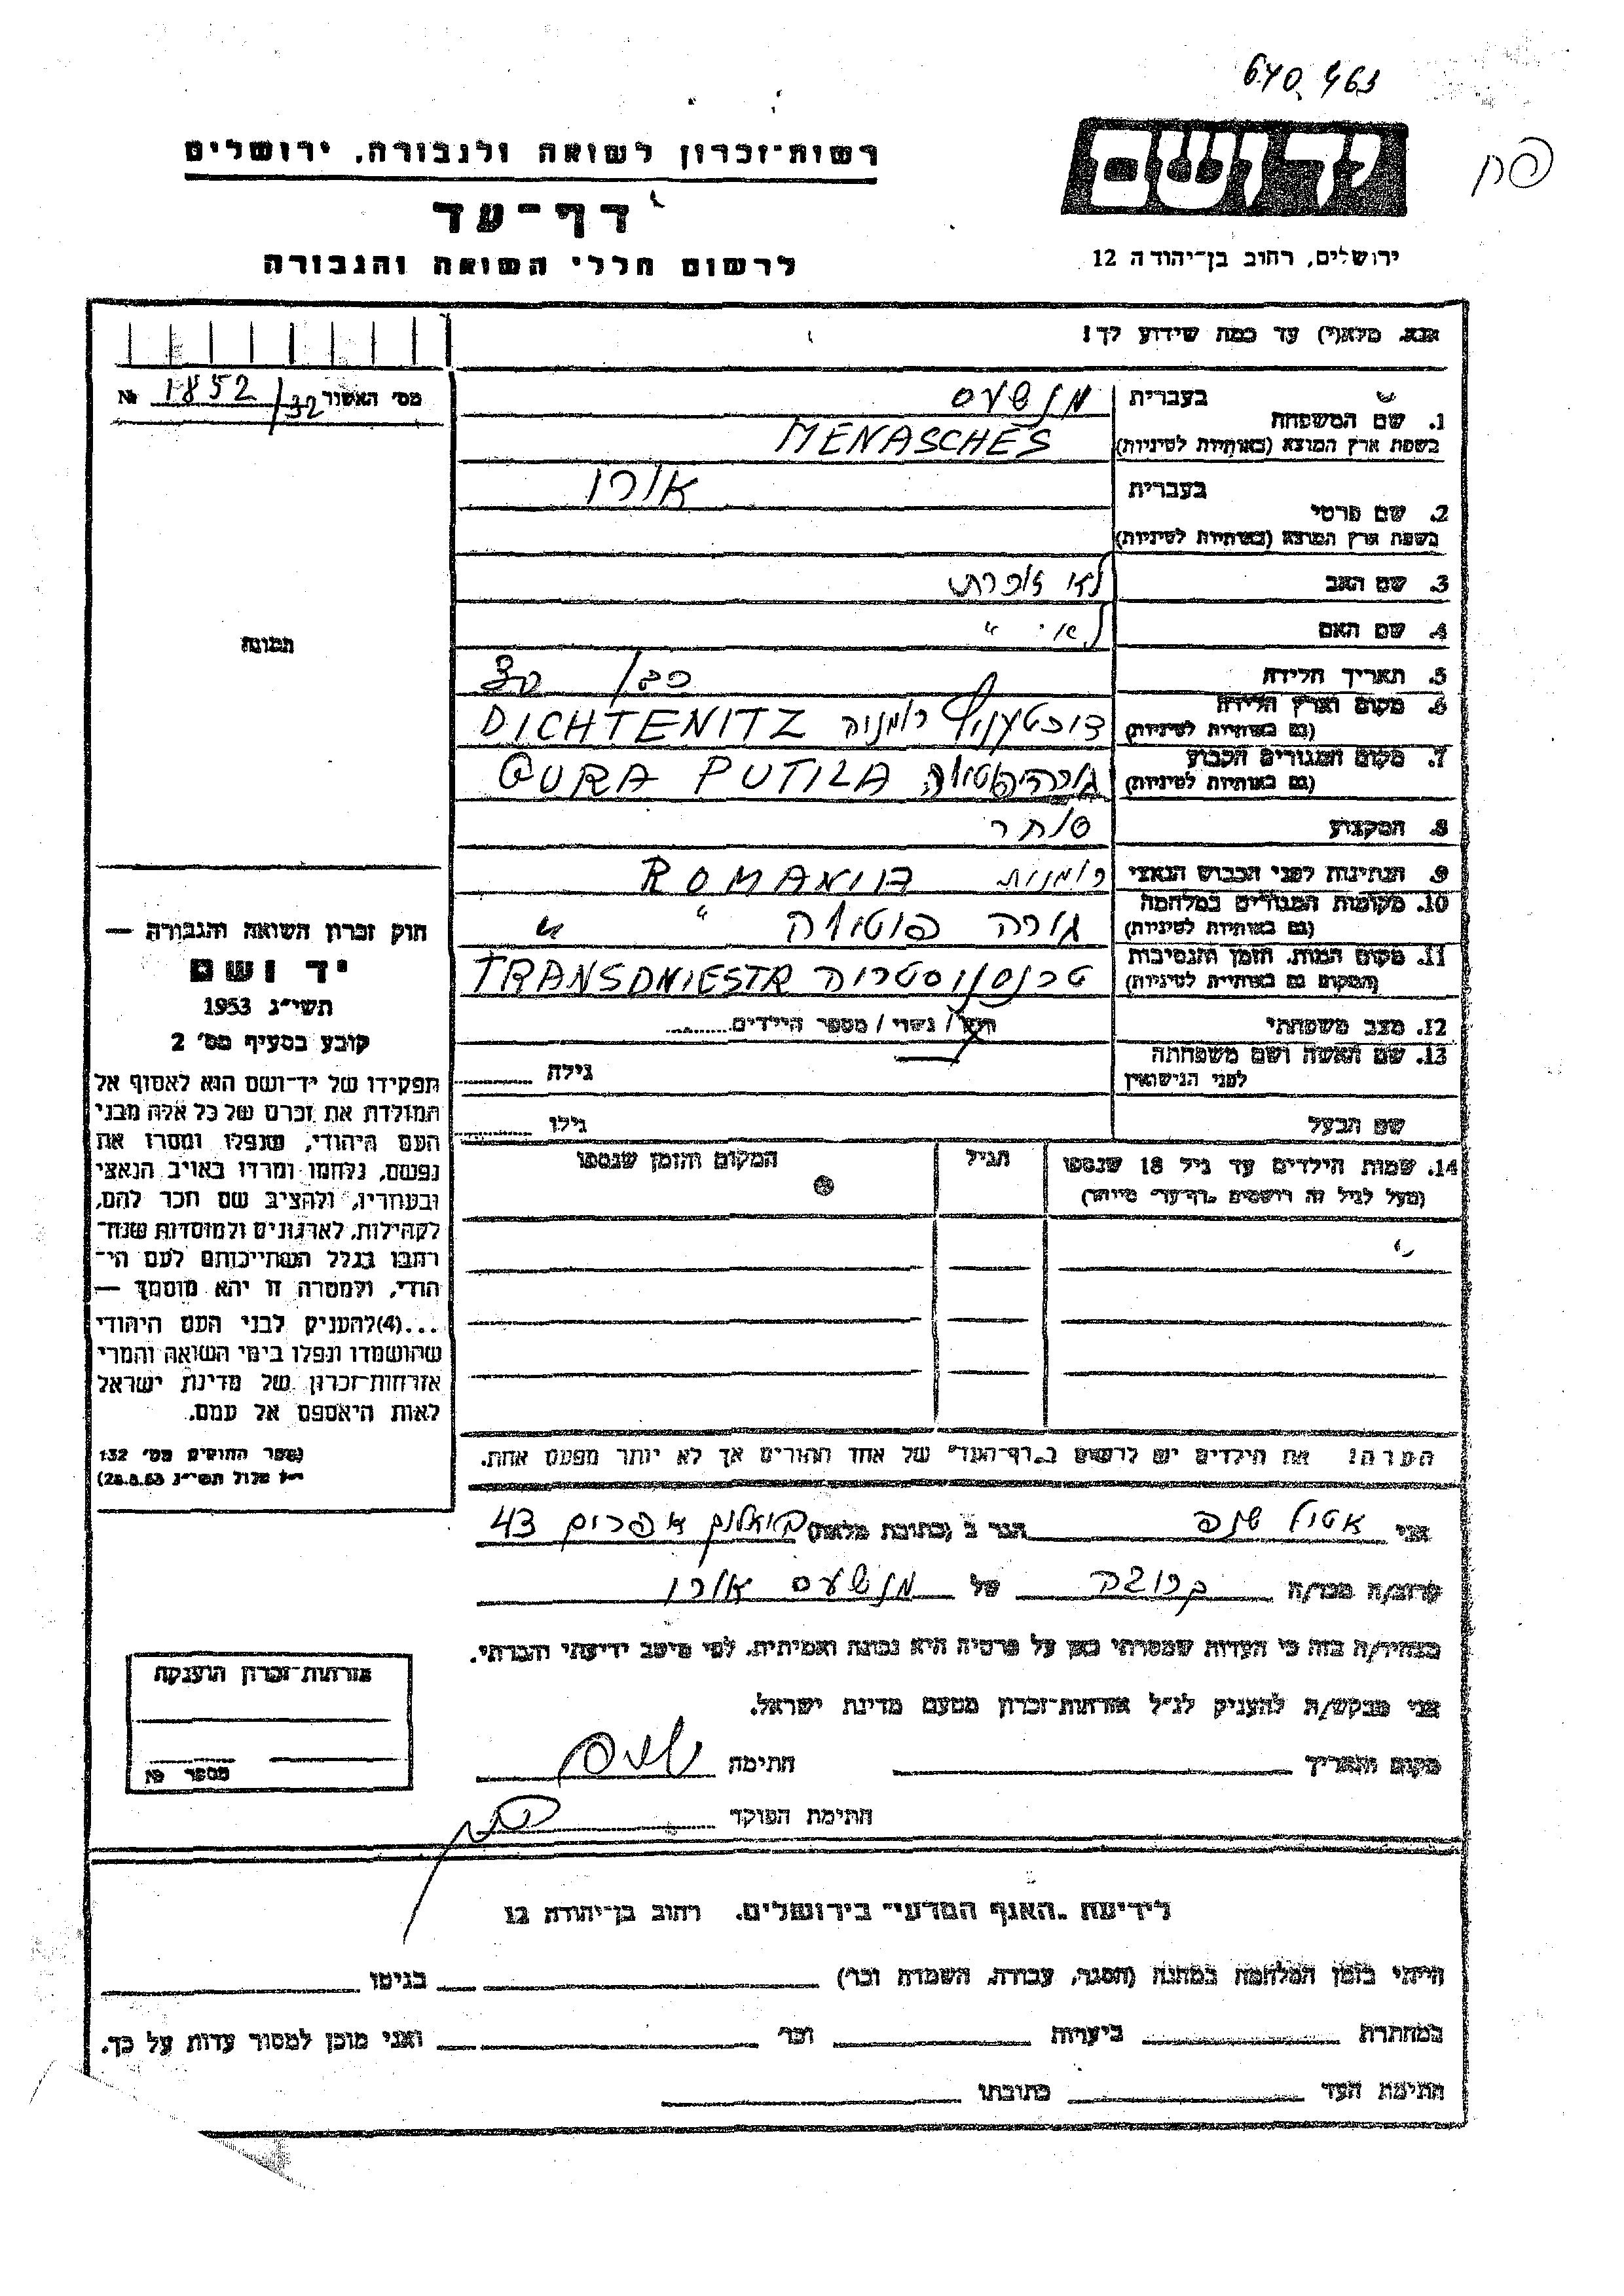 640463
רשות־זכרון לשואה ולגבורה, ירושלים
דף־עד
לרשום חללי השואה והגבורה
יד ושם
ירושלים, רחוב בן־יהודה 12
אנא, מלא(י) עד כמה שידוע לך!
מס׳ האשור 1852/32 №
תמונה
1. שם המשפחה
בעברית מנשעס
בשפת ארץ המוצא (באותיות לטיניות) MENASCHES
2. שם פרטי
בעברית אורו
בשפת ארץ המוצא (באותיות לטיניות)
3. שם האב לא זוכרת
4. שם האם לא "
5. תאריך הלידה
6. מקום וארץ הלידה
(גם באותיות לטיניות) רומניה DICHTENITZ
7. מקום המגורים הקבוע
(גם באותיות לטיניות) GURA PUTILA
8. המקצוע סוחר
9. הנתינות לפני הכבוש הנאצי רומנית ROMANIA
10. מקומות המגורים במלחמה
(גם באותיות לטיניות) גורה פוטילה " "
11. מקום המות, הזמן והנסיבות
(המקום גם באותיות לטיניות) TRANSDNIESTR
12. מצב משפחתי רווק / נשוי / מספר הילדים
13. שם האשה ושם משפחתה
לפני הנישואין גילה
שם הבעל גילו
14. שמות הילדים עד גיל 18 שנספו הגיל המקום והזמן שנספו
(מעל לגיל זה רושמים "דף־עד" מיוחד)
הערה: את הילדים יש לרשום ב"דף־העד" של אחד ההורים אך לא יותר מפעם אחת.
חוק זכרון השואה והגבורה —
יד ושם
תשי״ג 1953
קובע בסעיף מס׳ 2
תפקידו של יד־ושם הוא לאסוף אל
המולדת את זכרם של כל אלה מבני
העם היהודי, שנפלו ומסרו את
נפשם, נלחמו ומרדו באויב הנאצי
ובעוזריו, ולהציב שם וזכר להם,
לקהילות, לארגונים ולמוסדות שנח־
רבו בגלל השתייכותם לעם הי־
הודי, ולמטרה זו יהא מוסמך —
...(4)להעניק לבני העם היהודי
שהושמדו ונפלו בימי השואה והמרי
אזרחות־זכרון של מדינת ישראל
לאות היאספם אל עמם.
(ספר החוקים מס׳ 132
י״ז אלול תשי״ג 28.8.53)
אני הגר ב (כתובת מלאה) אפרים 43
קרוב/ה מכר/ה קרובה של מנשעס אורו
מצהיר/ה בזה כי העדות שמסרתי כאן על פרטיה היא נכונה ואמיתית, לפי מיטב ידיעתי והכרתי.
אני מבקש/ת להעניק לנ״ל אזרחות־זכרון מטעם מדינת ישראל.
מקום ותאריך חתימה
חתימת הפוקד
אזרחות־זכרון הוענקה
מספר
לידיעת "האגף המדעי" בירושלים, רחוב בן־יהודה 12
הייתי בזמן המלחמה במחנה (הסגר, עבודה, השמדה וכו׳) בגיטו
במחתרת ביערות וכו׳ ואני מוכן למסור עדות על כך.
חתימת העד כתובתו